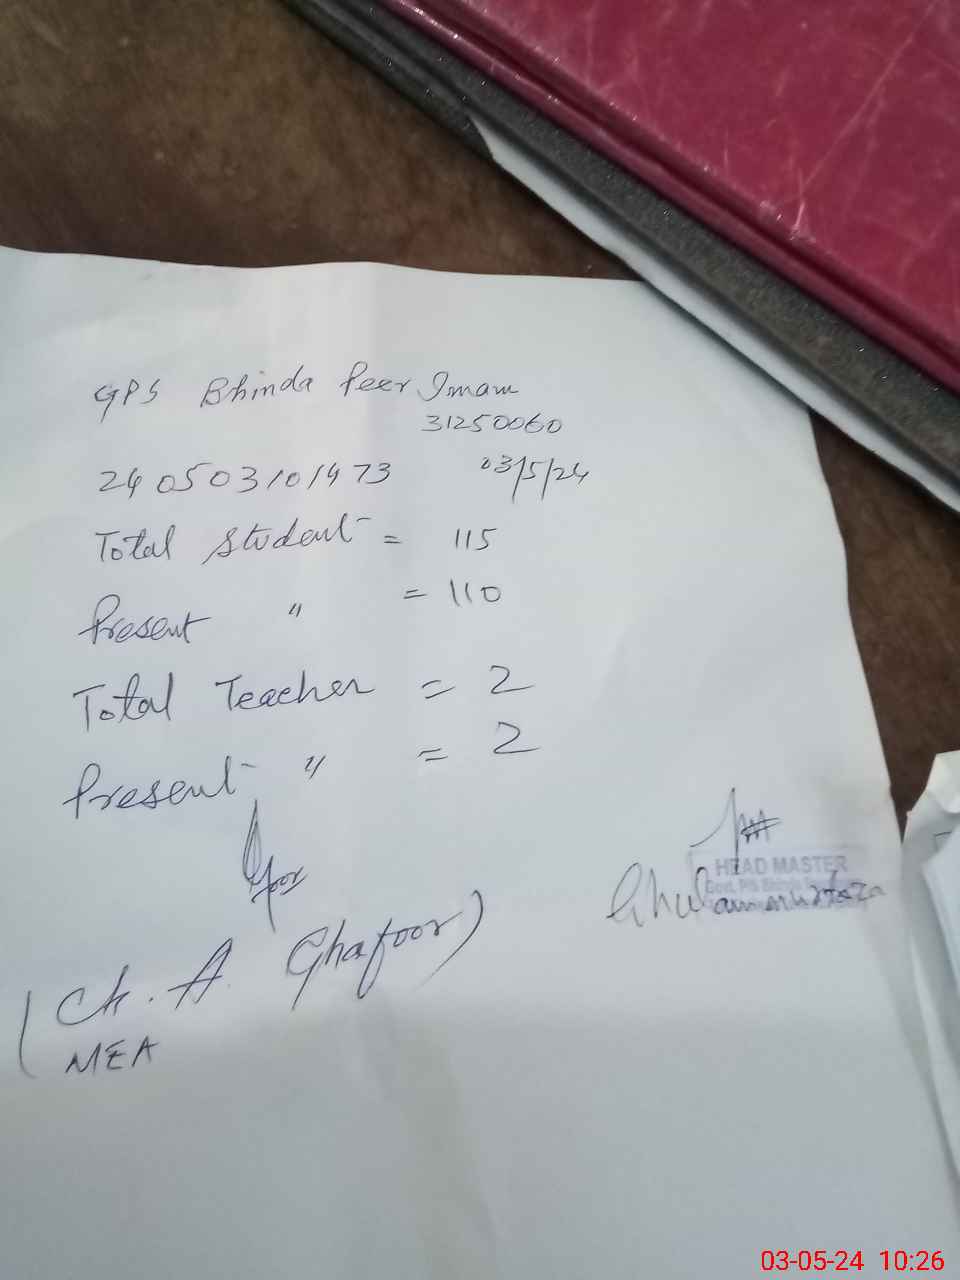 GPS Bhinda Peer Imam
31250060
240503101473 03/5/24
Total Student = 115
Present " = 110
Total Teacher = 2
Present " = 2
HEAD MASTER
Ghulam murtaza
(Ch. A. Ghafoor)
MEA
03-05-24 10:26